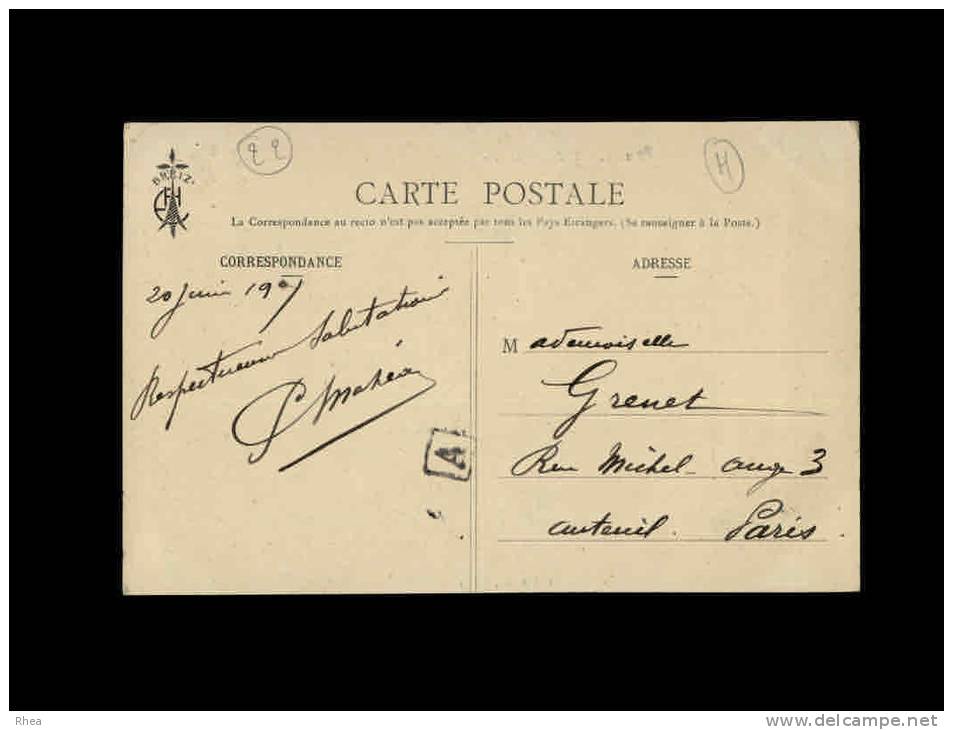 22
H
BREIZ
CARTE POSTALE
La Correspondance au recto n'est pas acceptée par tous les Pays Etrangers. (Se renseigner à la Poste.)
CORRESPONDANCE
20 juin 19
Respectueuses Salutations
ADRESSE
Mademoiselle
Grenet
Rue Michel-ange 3
auteuil. Paris.
A
Rhea
www.delcampe.net